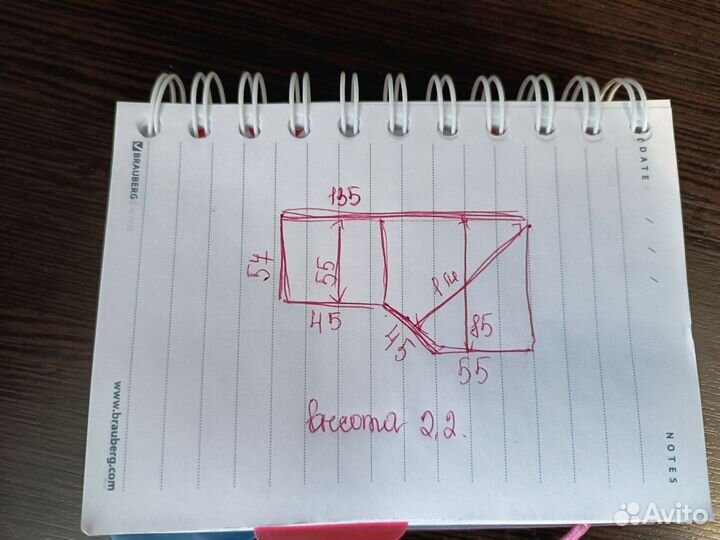 BRAUBERG
DATE
/ / /
135
57
55
45
45
85
55
высота 2,2.
www.brauberg.com
NOTES
Avito